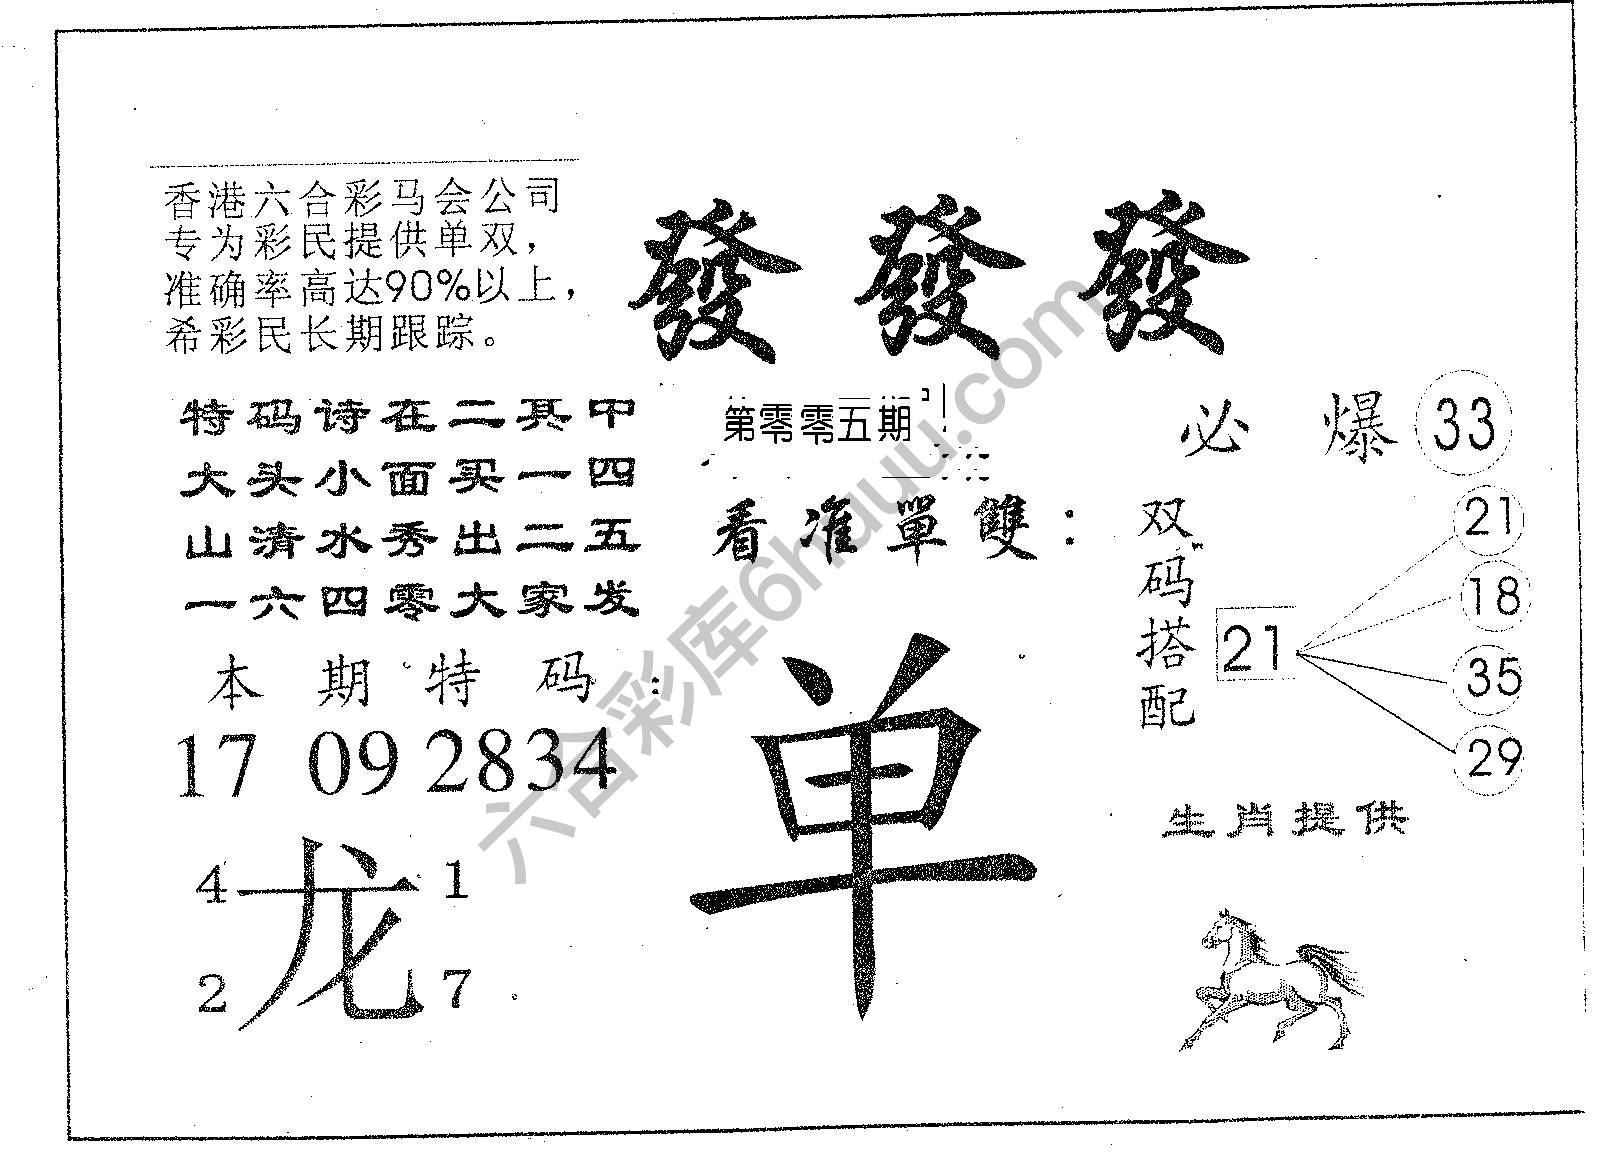 香港六合彩马会公司
专为彩民提供单双，
准确率高达90%以上，
希彩民长期跟踪。
發 發 發
特码诗在二其中
大头小面买一四
山清水秀出二五
一六四零大家发
第零零五期
看准單雙：
单
本期特码：
17 09 28 34
4 龙 1
2 7
必 爆 33
双码搭配
21
21
18
35
29
生肖提供
六合彩库6huu.com